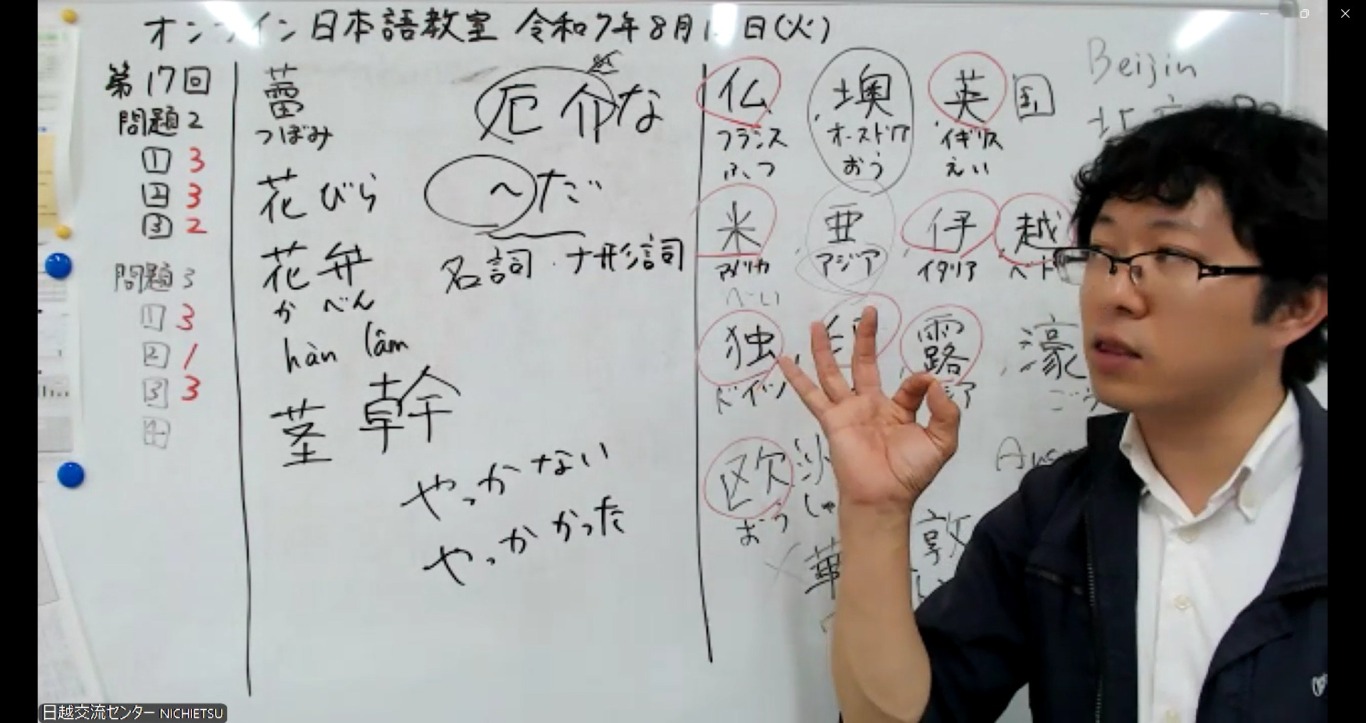 オンライン日本語教室 令和7年8月1 日(火)
第17回
問題2
1 3
2 3
3 2
問題3
1 3
2 1
3 3
4
蕾
つぼみ
花びら
花弁
か べん
hàn lâm
茎 幹
厄介な
~だ
名詞 ナ形詞
やっかない
やっかかった
仏 墺 英国
フランス オーストリア イギリス
ふつ おう えい
米 亜 伊 越
アメリカ アジア イタリア ベト
べい
独 露 濠
ドイツ ア ご
欧
おう しゅ
華 敦
Beijin
北京
日越交流センター NICHIETSU